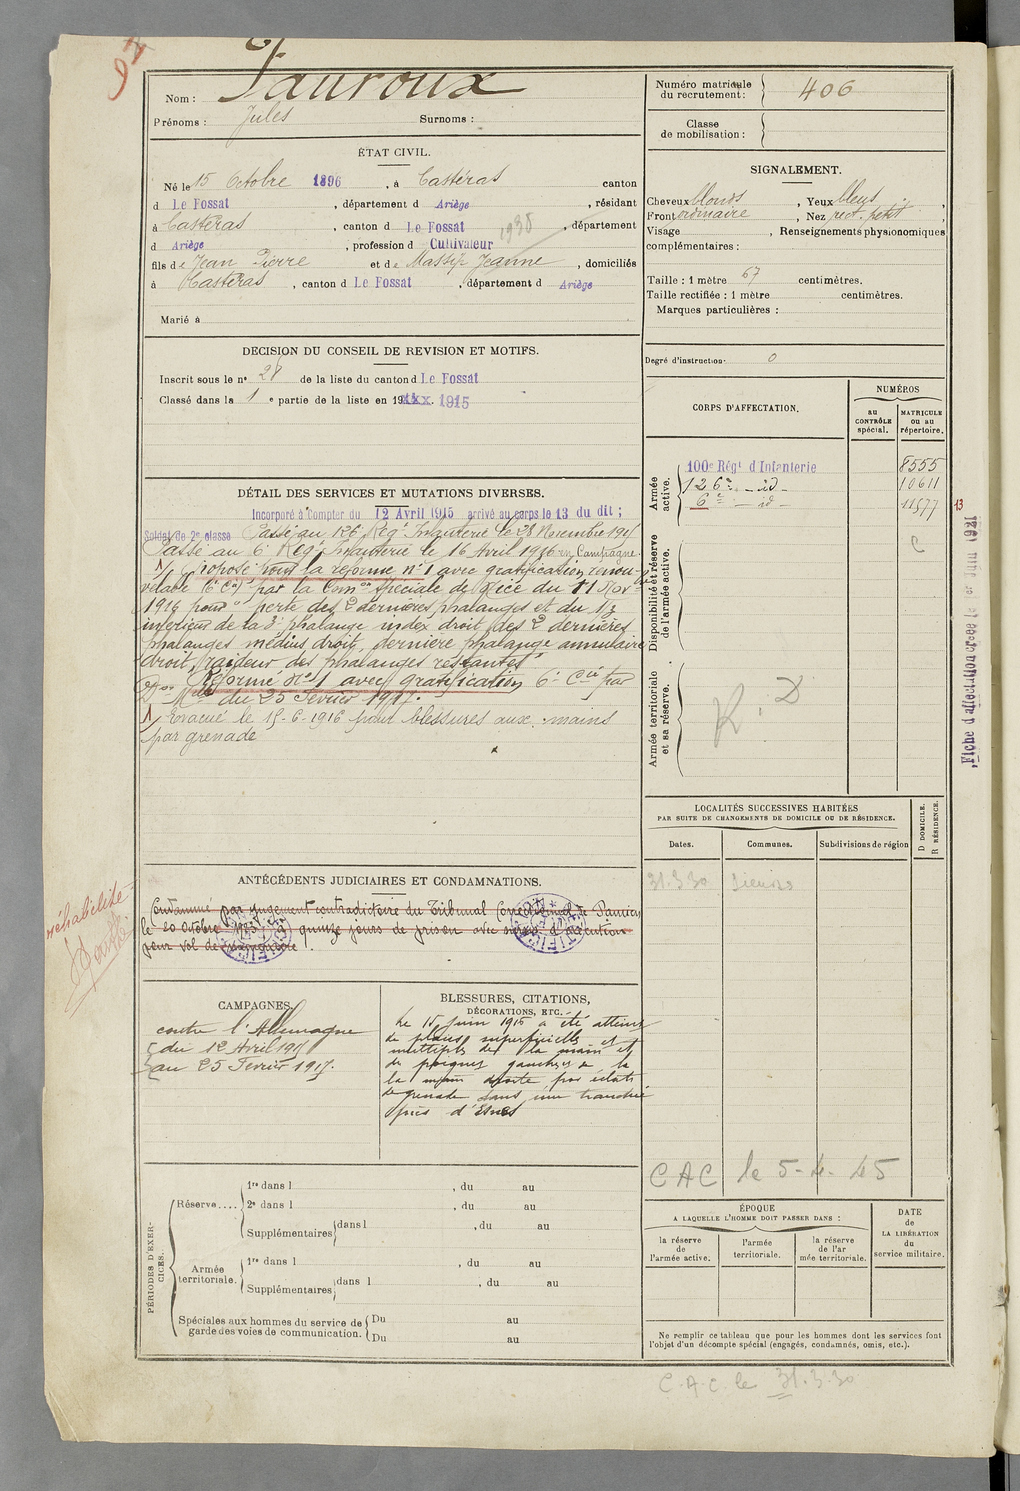 Nom : Fauroux
Prénoms : Jules Surnoms :
ÉTAT CIVIL.
Né le 15 Octobre 1896, à Castéras canton
d Le Fossat, département d Ariège, résidant
à Castéras, canton d Le Fossat, département
1930
d Ariège, profession d Cultivateur
fils de Jean Pierre et de Massip Jeanne, domiciliés
à Castéras, canton d Le Fossat, département d Ariège
Marié à
DECISION DU CONSEIL DE REVISION ET MOTIFS.
Inscrit sous le n° 28 de la liste du canton d Le Fossat
Classé dans la 1 e partie de la liste en 19xxx. 1915
DÉTAIL DES SERVICES ET MUTATIONS DIVERSES.
Incorporé à compter du 12 Avril 1915 arrivé au corps le 13 du dit ;
Soldat de 2e classe Passé au 126 Régt Infanterie le 28 Novembre 1915
Passé au 6e Régt Infanterie le 16 Avril 1916 en Campagne
1/ Proposé pour la réforme n° 1 avec gratification renou-
velable (6e Cie) par la Comon spéciale de du 11 Nov
1916 pour "perte des 2 dernières phalanges et du 1/3
inférieur de la 3e phalange index droit, des 2 dernières
phalanges médius droit, dernière phalange annulaire
droit, raideur des phalanges restantes"
Réformé n° 1 avec gratification 6e Cie par
Don Mlle du 25 Février 1917.
1/ Evacué le 15-6-1916 pour blessures aux mains
par grenade
ANTÉCÉDENTS JUDICIAIRES ET CONDAMNATIONS.
Condamné par jugement contradictoire du Tribunal Correctionnel de Pamiers
le 20 Octobre à quinze jours de prison avec sursis d'exécution
pour vol de
réhabilité
CAMPAGNES.
contre l'Allemagne
du 12 Avril 1915
au 25 Février 1917.
BLESSURES, CITATIONS,
DÉCORATIONS, ETC.
Le 15 juin 1916 a été atteint
de plaies superficielles et
multiples de la main et
du poignet gauches et de
la main droite, par éclats
de grenade dans une tranchée
près d'Esnes
PÉRIODES D'EXERCICES.
Réserve....
1re dans l , du au
2e dans l , du au
Supplémentaires dans l , du au
Armée territoriale.
1re dans l , du au
Supplémentaires dans l , du au
Spéciales aux hommes du service de garde des voies de communication.
Du au
Du au
Numéro matricule du recrutement : 406
Classe de mobilisation :
SIGNALEMENT.
Cheveux blonds, Yeux bleus,
Front ordinaire, Nez rect. petit,
Visage , Renseignements physionomiques
complémentaires :
Taille : 1 mètre 67 centimètres.
Taille rectifiée : 1 mètre centimètres.
Marques particulières :
Degré d'instruction : 0
CORPS D'AFFECTATION.
NUMÉROS
au CONTRÔLE spécial.
MATRICULE ou au répertoire.
Armée active.
100e Régt d'Infanterie 8555
126e - id - 10611
6e - id - 11577
13
Disponibilité et réserve de l'armée active.
Armée territoriale et sa réserve.
R. D
LOCALITÉS SUCCESSIVES HABITÉES
PAR SUITE DE CHANGEMENTS DE DOMICILE OU DE RÉSIDENCE.
Dates. Communes. Subdivisions de région
D DOMICILE.
R RÉSIDENCE.
31.3.30
CAC le 5-4-45
ÉPOQUE
A LAQUELLE L'HOMME DOIT PASSER DANS :
la réserve de l'armée active.
l'armée territoriale.
la réserve de l'armée territoriale.
DATE de LA LIBÉRATION du service militaire.
Ne remplir ce tableau que pour les hommes dont les services font
l'objet d'un décompte spécial (engagés, condamnés, omis, etc.).
C.A.C. le 31.3.30